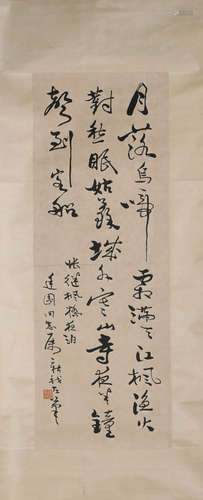 月落烏啼霜滿天江楓漁火
對愁眠姑蘇城外寒山寺夜半鐘
聲到客船
張繼楓橋夜泊
建國同志屬